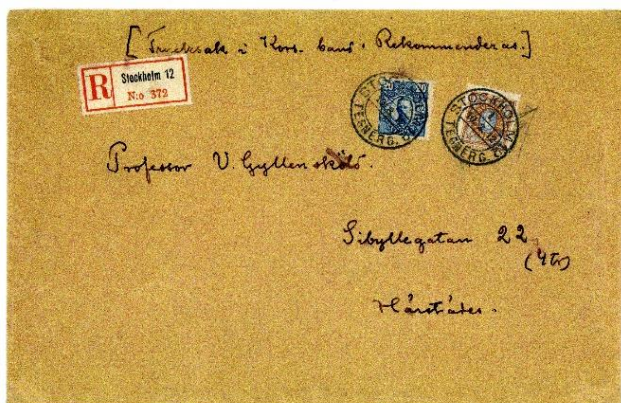 [Trycksak i Kors-band. Rekommenderas.]
R
Stockholm 12
N:o 372
STOCKHOLM
TEGNÉRG.
STOCKHOLM
TEGNÉRG.
Professor V. Gyllensköld.
Sibyllegatan 22
(4 tr)
Härstädes.